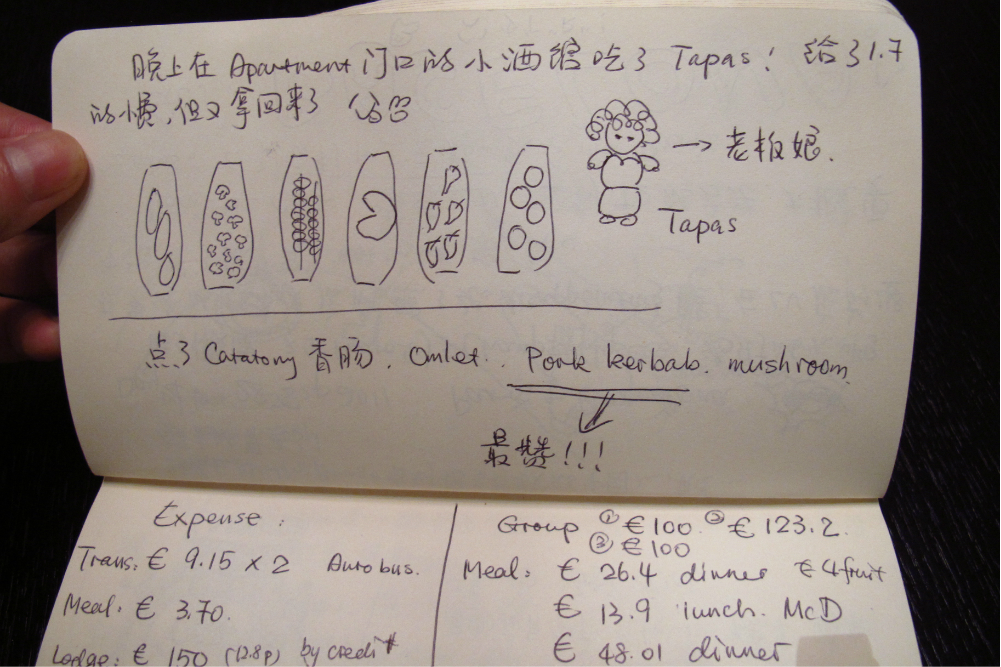 晚上在 Apartment 门口的小酒馆吃了 Tapas! 给了1.7
的小费,但又拿回来了
→ 老板娘.
Tapas
点了 Catatony 香肠. Omlet. Pork kerbab. mushroom.
最赞!!!
Expense:
Trans: € 9.15 × 2 Aurobus.
Meal: € 3.70.
Lodge: € 150 (12.8p) by credit
Group ① € 100 ② € 123.2.
③ € 100
Meal: € 26.4 dinner € 4 fruit
€ 13.9 lunch. McD
€ 48.01 dinner